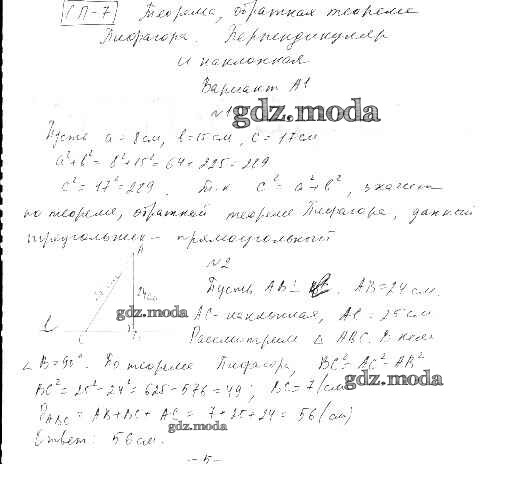 СП-7 Теорема, обратная теореме
Пифагора. Перпендикуляр
и наклонная
Вариант А1
№1
gdz.moda
Пусть a = 8 см, b = 15 см, c = 17 см
a²+b² = 8²+15² = 64+225 = 289
c² = 17² = 289. Т.к c² = a²+b², значит
по теореме, обратной теореме Пифагора, данный
треугольник – прямоугольный
№2
Пусть AB ⊥ AB = 24 см.
A
25 см
24 см
gdz.moda
AC – наклонная, AC = 25 см
C
Рассмотрим △ ABC. В нем
∠B = 90°. По теореме Пифагора, BC² = AC² – AB²
BC² = 25² – 24² = 625 – 576 = 49; BC = 7 (см)
gdz.moda
P ABC = AB + BC + AC = 7 + 25 + 24 = 56 (см)
gdz.moda
Ответ: 56 см.
– 5 –